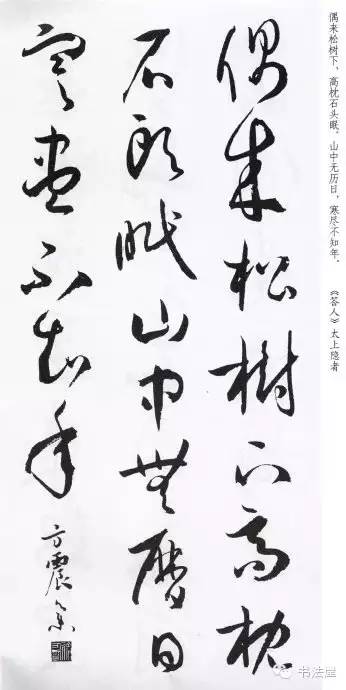 偶来松樹下高枕
石頭眠山中無曆日
寒盡不知年
方震
偶来松树下，高枕石头眠。山中无历日，寒尽不知年。 《答人》太上隐者
书法屋